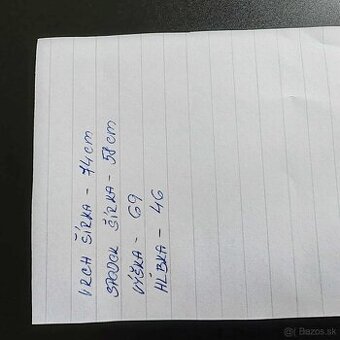 VRCH ŠÍRKA - 74cm
SPODOK ŠÍRKA - 58cm
VÝŠKA - 69
HĹBKA - 46
@( Bazos.sk